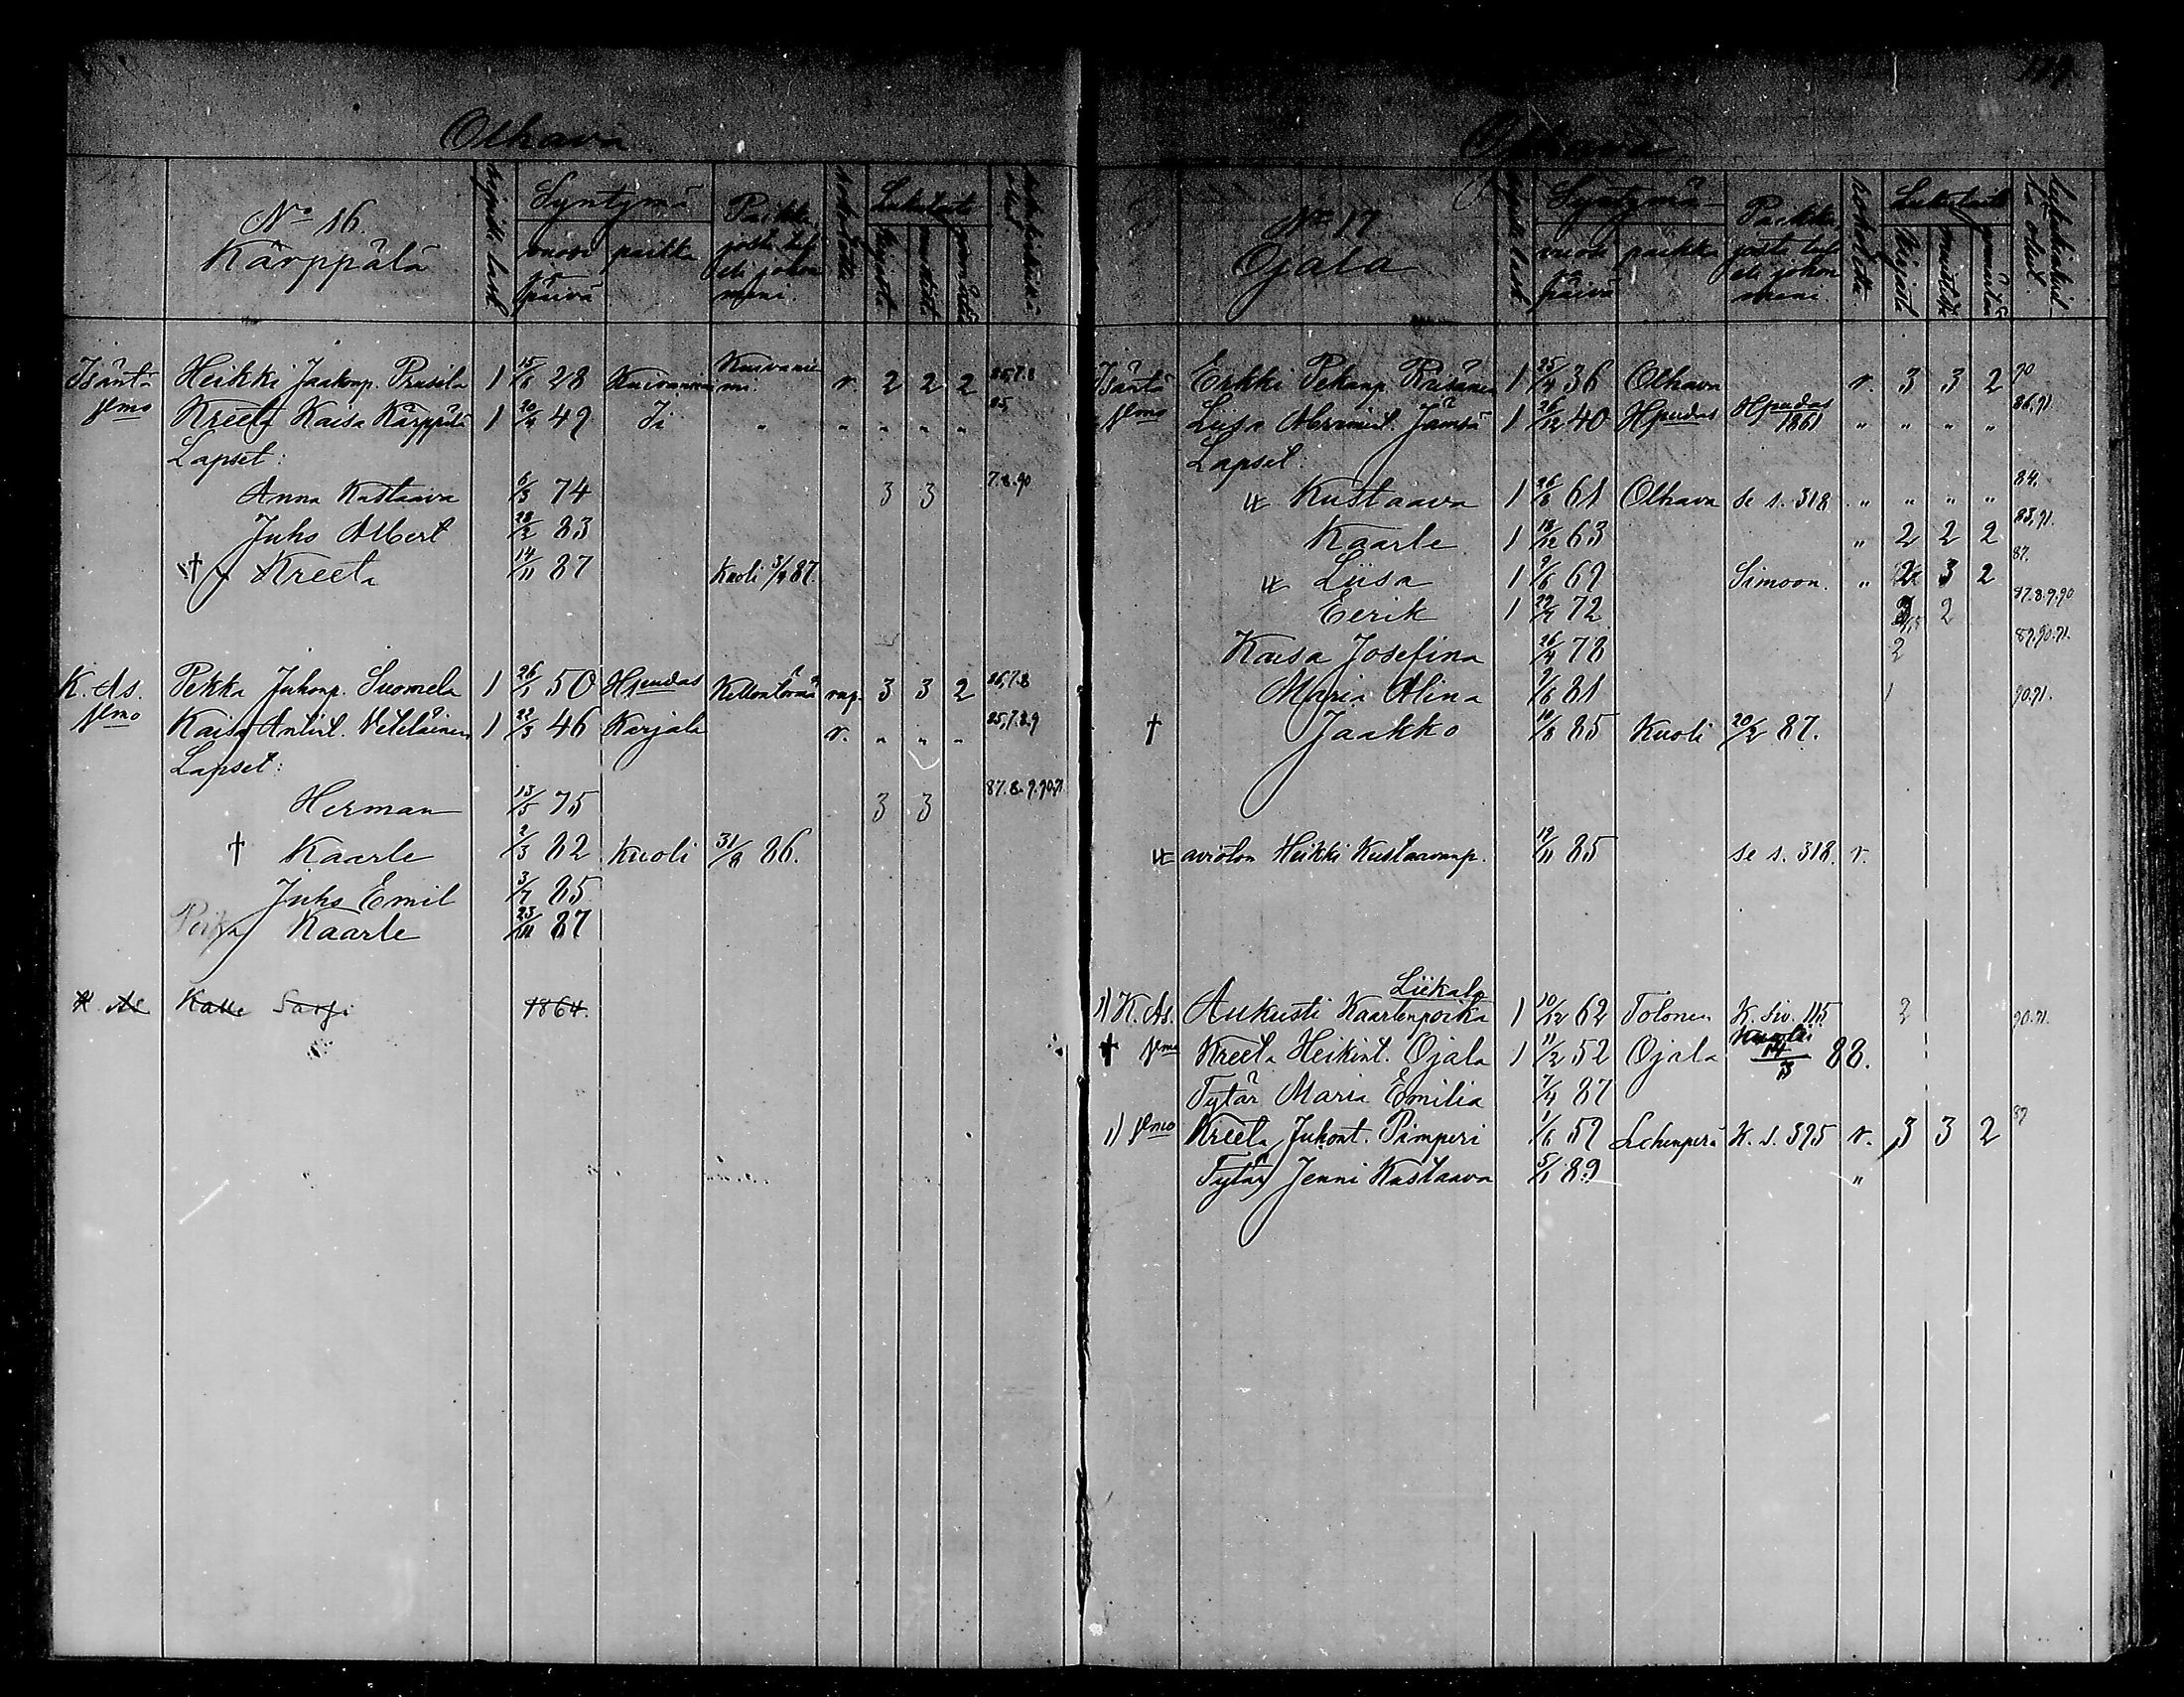 Olhava
No 16.
Kärppälä
Syntymä
vuosi ja päivä
paikka
Paikka, josta tul. eli johon meni.
Lukutaito
kirjasta

Isäntä Heikki Jaakonp. Prusila 1 15/8 28 Kuivaniemi Kuivaniemi. r. 2 2 2
Vmo Kreeta Kaisa Kärppälä 1 20/4 49 Ii " " " " " 85,
Lapset:
Anna Kustaava 6/3 74 3 3 7.8.90
Juho Albert 28/2 83
† Kreeta 14/11 87 Kuoli 3/4 87.
K. As. Pekka Juhonp. Suomela 1 26/1 50 Hpudas Kellonlormä rup. 3 3 2 86,7.8
Vmo Kaisa Antint. Veteläinen 1 22/3 46 Karjala r. " " " 85,7.8.9
Lapset:
Herman 13/5 75 3 3 87.8.9.90.91
† Kaarle 2/3 82 Kuoli 31/8 86.
Juho Emil 3/7 85
Poika Kaarle 23/11 87
K. As. Kalle Sarfi 1864.

119
Olhava
No 17
Ojala
Syntymä
vuosi ja päivä
paikka
Paikka, josta tul. eli johon meni.
Lukutaito
kirjasta
Isäntä Erkki Pekanp. Räisänen 1 25/4 36 Olhava r. 3 3 2 90
Vmo Liisa Abramint. Jämsä 1 26/12 40 Hpudas Hpudas 1861 " " " " 86,91.
Lapset:
Kustaava 1 26/8 61 Olhava se s. 318 " " " " 84.
Kaarle 1 18/12 63 " 2 2 2 85,91.
Liisa 1 9/6 69 Simoon. " 2 3 2 87.
Eerik 1 29/7 72 2 87.8.9.90
Kaisa Josefina 26/4 78 2 89.90.91.
Maria Alina 9/8 81 1 90.91.
† Jaakko 10/8 85 Kuoli 20/2 87.
avioton Heikki Kustaavanp. 19/11 85 se s. 318. r.
Liekala
1) K. As. Aukusti Kaarlenpoika 1 10/12 62 Tolonen K. siv. 115 2 90.91.
† Vmo Kreeta Heikint. Ojala 1 11/2 52 Ojala Kuoli 14/3 88.
Tytär Maria Emilia 7/4 87
1) Vmo Kreeta Juhont. Pimperi 1/6 57 Lehenperä K. s. 395 r. 3 3 2 87
Tytär Jenni Kustaava 5/1 89 "